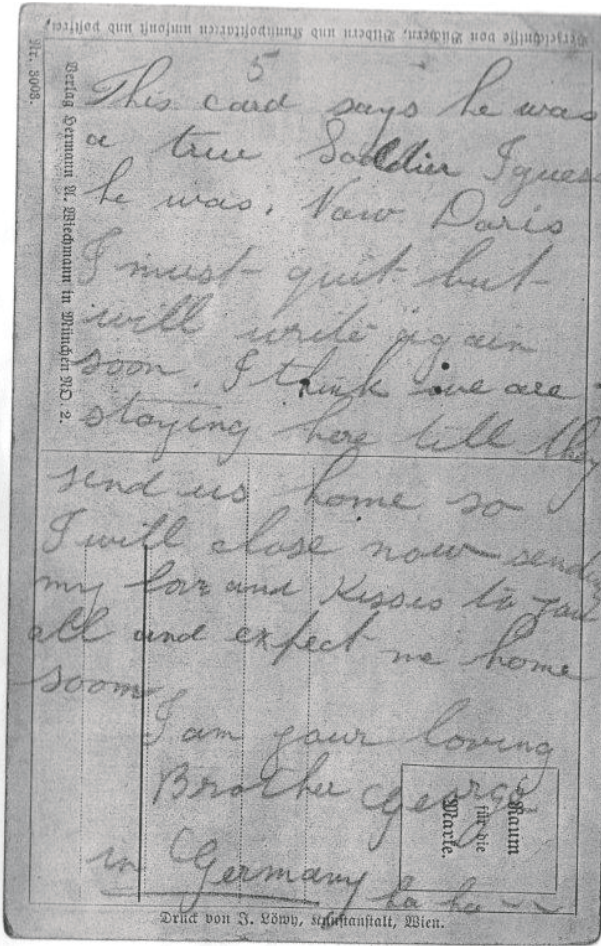 Verzeichnisse von Büchern, Bildern und Kunstpostkarten umsonst und postfrei.
Nr. 3008.
Verlag Hermann A. Wiechmann in München NO. 2.
5
This card says he was
a true Soldier I guess
he was. Now Doris
I must quit but
will write again
soon. I think we are
staying here till they
send us home so
I will close now sending
my love and Kisses to you
all and expect me home
soon
I am your loving
Brother George
in Germany ha ha
Raum
für die
Marke.
Druck von J. Löwy, Kunstanstalt, Wien.